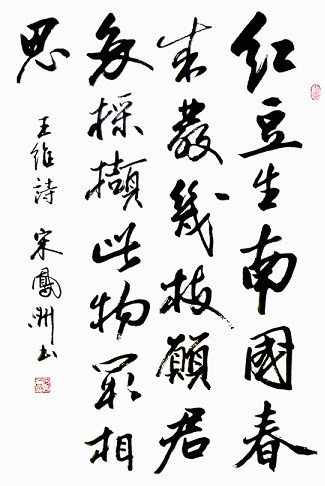 紅豆生南國春
来發幾枝願君
多採擷此物最相
思
王維詩 宋鳳洲书